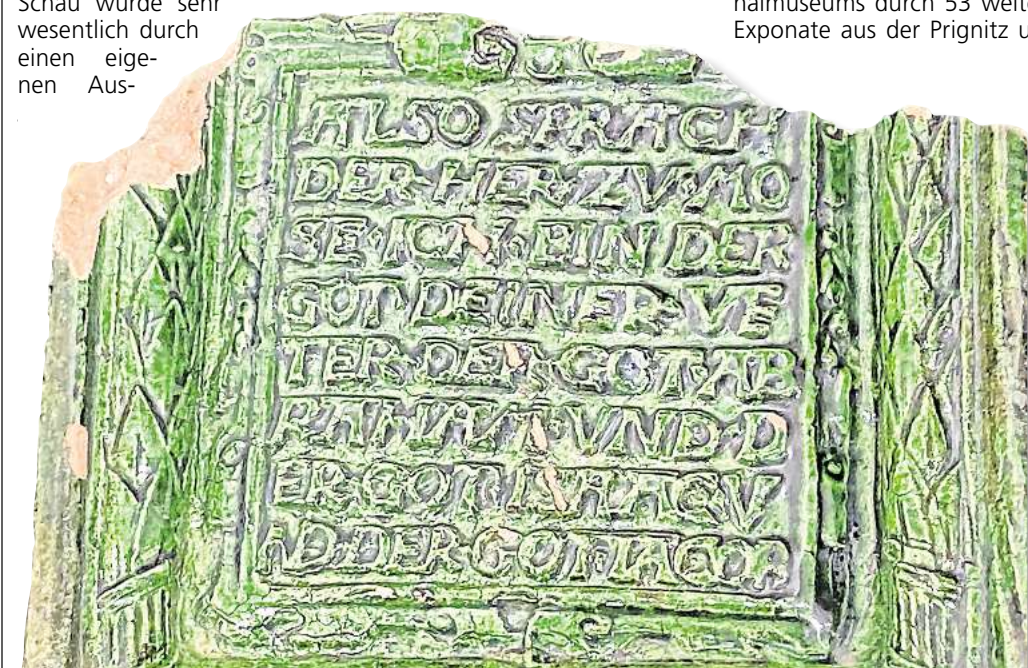 Schau wurde sehr
wesentlich durch
einen eige-
nen Aus-
nalmuseums durch 53 weite
Exponate aus der Prignitz u
ALSO SPRACH
DER·HER·ZV·MO
SE·ICH·BIN DER
GOT DEINER·VE
TER·DER·GOT·AB
RAHAM·VND·D
ER·GOT ISAAC V
ND·DER·GOT IACOB